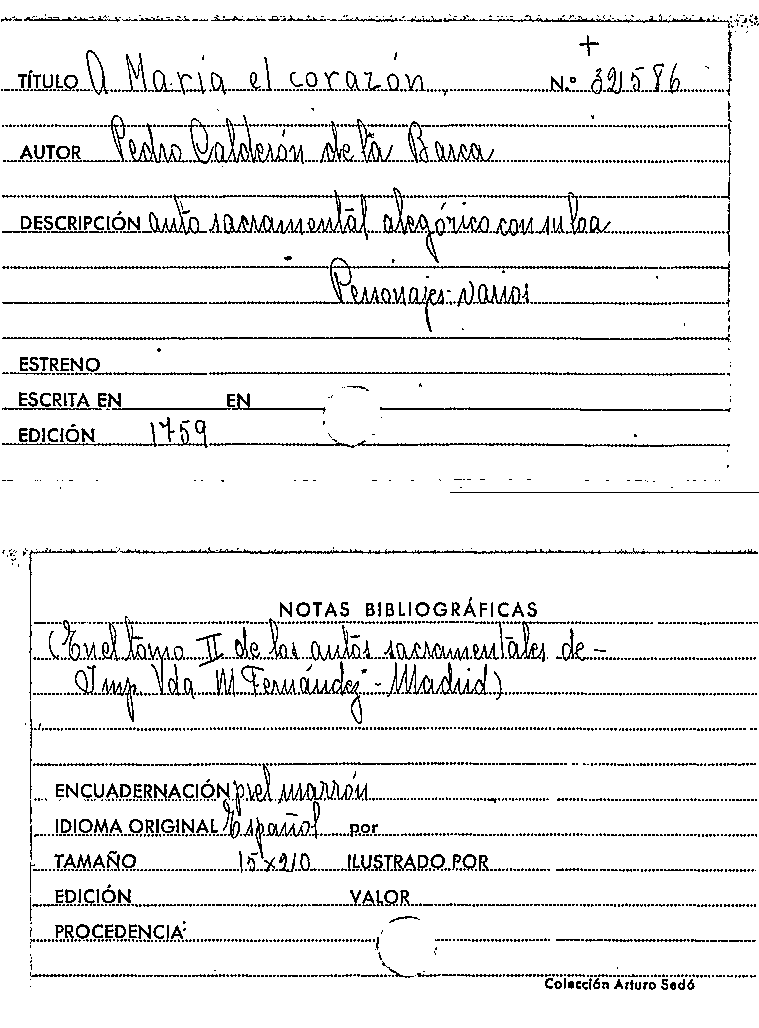 +
TÍTULO A María el corazón, N.º 321586
AUTOR Pedro Calderón de la Barca
DESCRIPCIÓN auto sacramental alegórico con su loa
Personajes - varios
ESTRENO
ESCRITA EN EN
EDICIÓN 1759
NOTAS BIBLIOGRÁFICAS
(En el tomo II de los autos sacramentales de -
Imp. Vda M Fernández - Madrid)
ENCUADERNACIÓN piel marrón
IDIOMA ORIGINAL Español por
TAMAÑO 15x210 ILUSTRADO POR
EDICIÓN VALOR
PROCEDENCIA
Colección Arturo Sedó